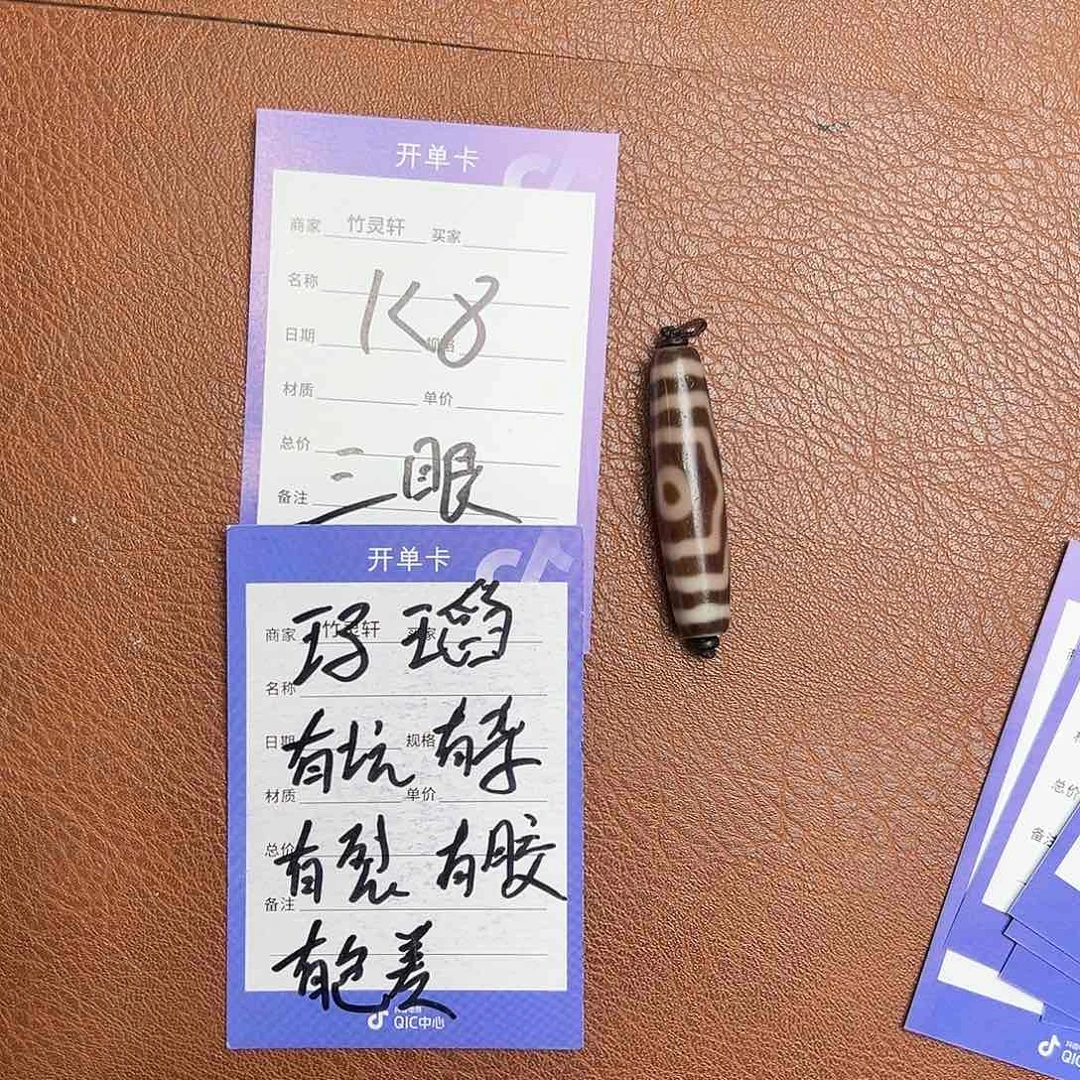 开单卡
商家 竹灵轩 买家
名称
K8
日期 规格
材质 单价
总价
三眼
备注
开单卡
商家 竹灵轩 买家
玛瑙
名称
日期 规格
有坑 有杂
材质 单价
总价
有裂 有胶
备注
有色差
QIC中心
总价